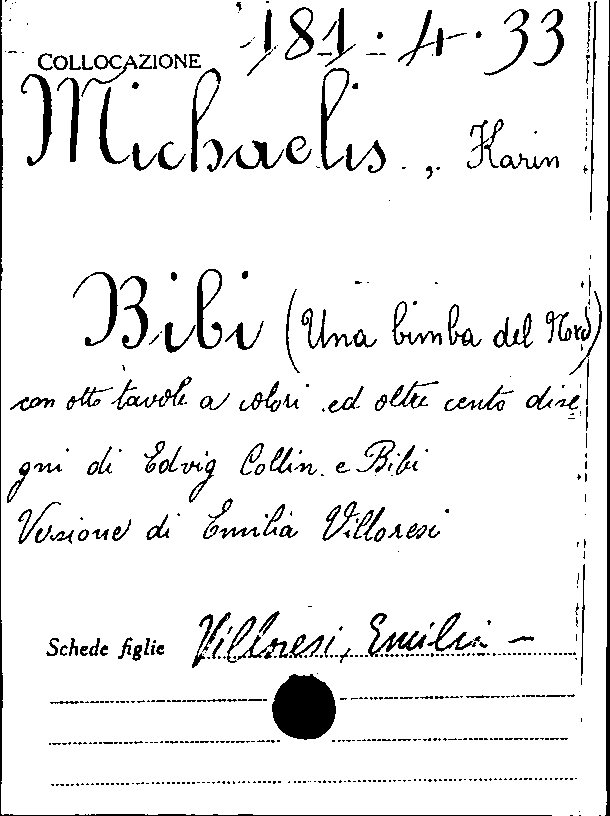 COLLOCAZIONE 181.4.33
Michaelis, Karin
Bibi (Una bimba del Nord)
con otto tavole a colori ed oltre cento dise
gni di Edvig Collin e Bibi
Versione di Emilia Villoresi
Schede figlie Villoresi, Emilia —